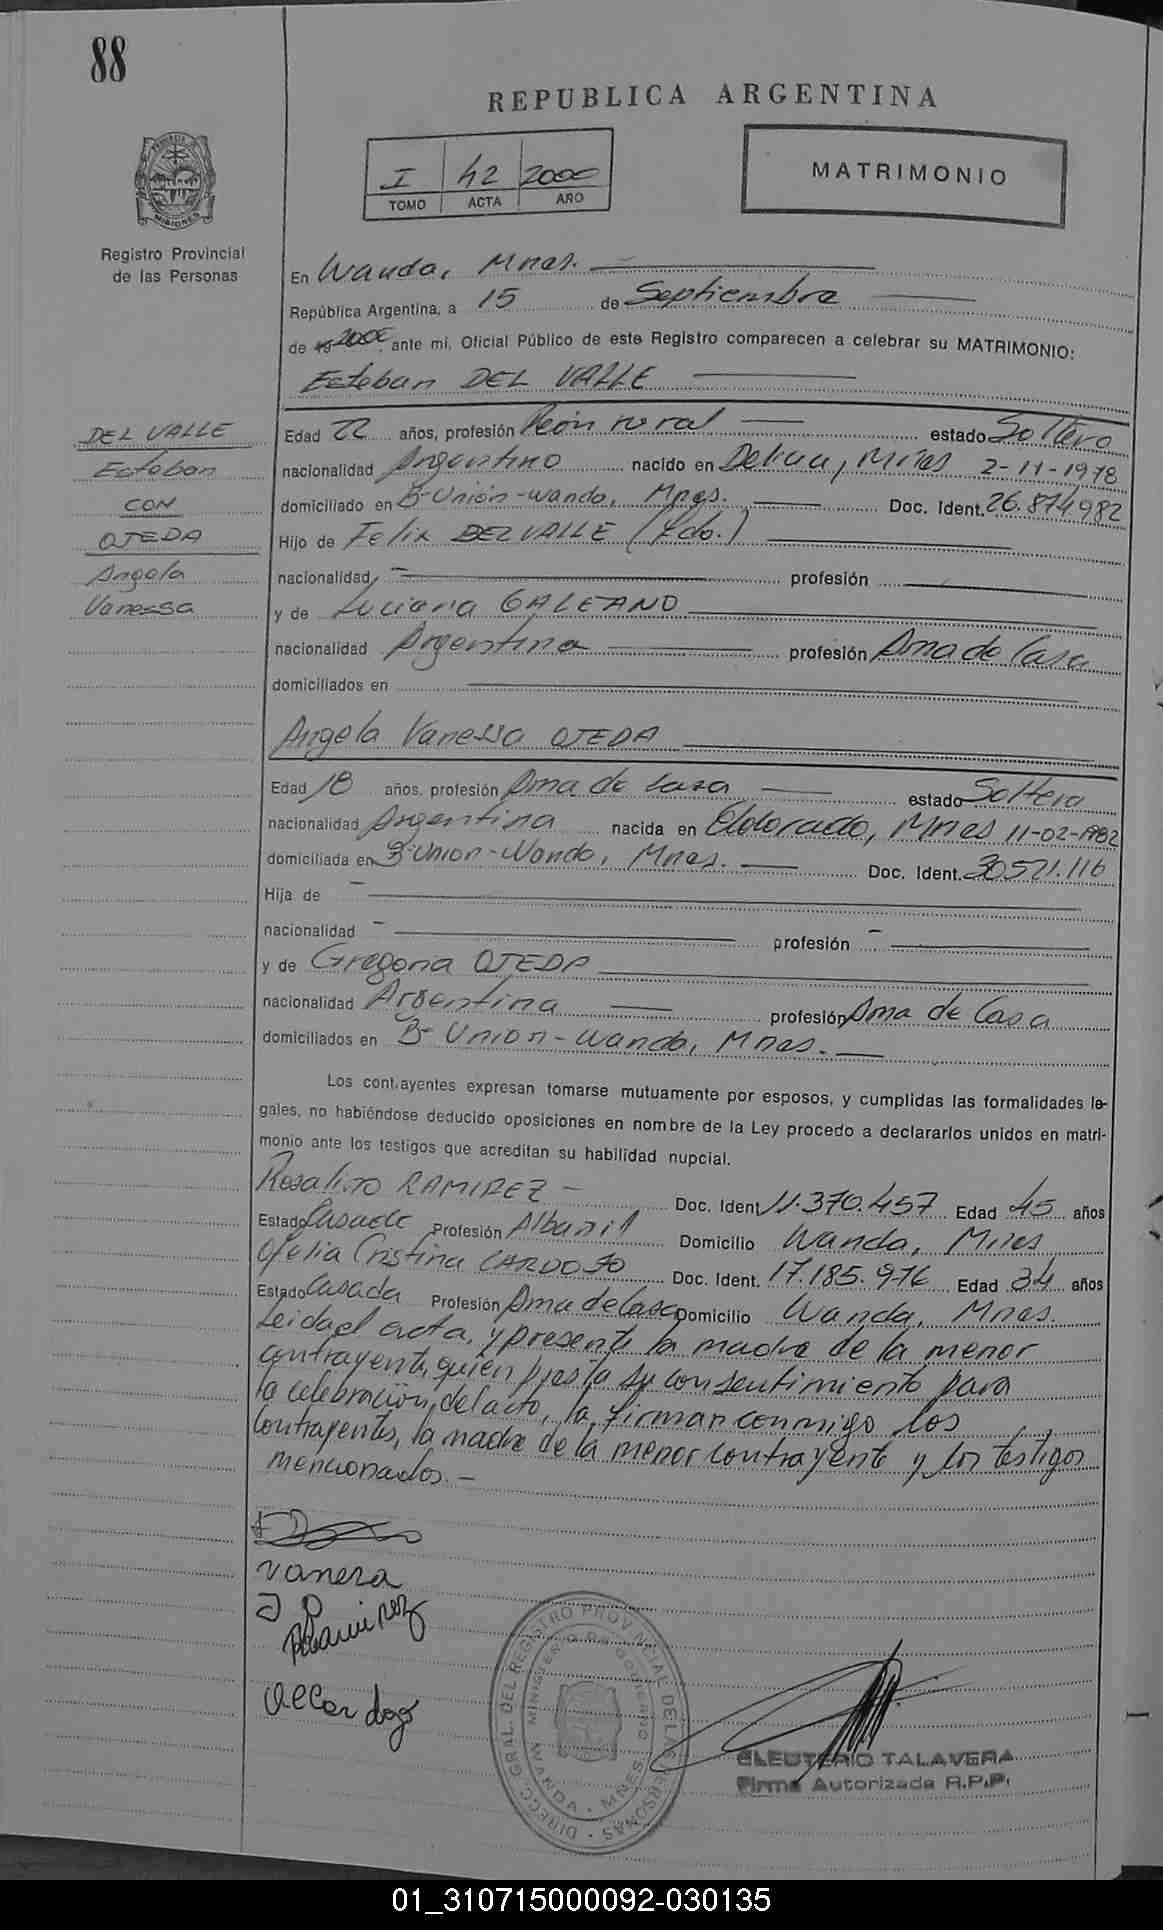 88
REPUBLICA ARGENTINA
I 42 2000
TOMO ACTA AÑO
MATRIMONIO
MISIONES
Registro Provincial
de las Personas
En Wanda, Mnes.
República Argentina, a 15 de Septiembre
de 19 2000, ante mi, Oficial Público de este Registro comparecen a celebrar su MATRIMONIO:
Esteban DEL VALLE
DEL VALLE
Esteban
CON
OJEDA
Angela
Vanessa
Edad 22 años, profesión Peón rural estado Soltero
nacionalidad Argentino nacido en Delicia, Mnes 2-11-1978
domiciliado en B-Unión-Wanda, Mnes. Doc. Ident. 26.874982
Hijo de Felix DEL VALLE (fdo.)
nacionalidad - profesión
y de Luciana GALEANO
nacionalidad Argentina profesión Ama de Casa
domiciliados en
Angela Vanessa OJEDA
Edad 18 años, profesión Ama de casa estado Soltera
nacionalidad Argentina nacida en Eldorado, Mnes 11-02-1982
domiciliada en B-Union-Wanda, Mnes. Doc. Ident. 30521.116
Hija de -
nacionalidad - profesión -
y de Gregoria OJEDA
nacionalidad Argentina profesión Ama de Casa
domiciliados en B-Union-Wanda, Mnes.-
Los contrayentes expresan tomarse mutuamente por esposos, y cumplidas las formalidades le-
gales, no habiéndose deducido oposiciones en nombre de la Ley procedo a declararlos unidos en matri-
monio ante los testigos que acreditan su habilidad nupcial.
Rosalino RAMIREZ - Doc. Ident. 11.370.457 Edad 45 años
Estado Casado Profesión Albanil Domicilio Wanda, Mnes
Ofelia Cristina CARDOZO Doc. Ident. 17.185.976 Edad 34 años
Estado Casada Profesión Ama de Casa Domicilio Wanda, Mnes.
Leida el acta, y presente la madre de la menor
contrayente, quién presta su consentimiento para
la celebración del acto, la firman conmigo los
contrayentes, la madre de la menor contrayente y los testigos
mencionados.-
Vanesa
Ramirez
DIRECC. GRAL. DEL REGISTRO PROVINCIAL DE LAS PERSONAS
MINISTERIO DE GOBIERNO
WANDA - MNES.
ELEUTERIO TALAVERA
Firma Autorizada R.P.P.
01_310715000092-030135